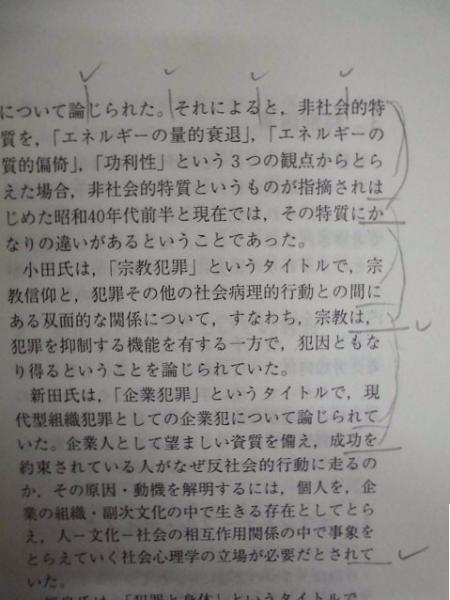 について論じられた。それによると，非社会的特
質を，「エネルギーの量的衰退」，「エネルギーの
質的偏倚」，「功利性」という3つの観点からとら
えた場合，非社会的特質というものが指摘されは
じめた昭和40年代前半と現在では，その特質にか
なりの違いがあるということであった。
小田氏は，「宗教犯罪」というタイトルで，宗
教信仰と，犯罪その他の社会病理的行動との間に
ある双面的な関係について，すなわち，宗教は，
犯罪を抑制する機能を有する一方で，犯因ともな
り得るということを論じられていた。
新田氏は，「企業犯罪」というタイトルで，現
代型組織犯罪としての企業犯について論じられて
いた。企業人として望ましい資質を備え，成功を
約束されている人がなぜ反社会的行動に走るの
か，その原因・動機を解明するには，個人を，企
業の組織・副次文化の中で生きる存在としてとら
え，人－文化－社会の相互作用関係の中で事象を
とらえていく社会心理学の立場が必要だとされて
いた。
氏は，「犯罪と身体」というタイトルで